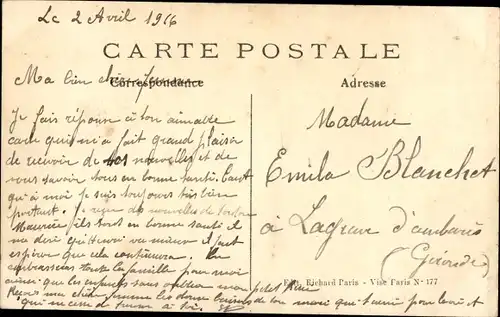 Le 2 Avril 1916
CARTE POSTALE
Correspondance
Adresse
Ma bien chère femme
Je fais réponse à ton aimable
carte qui m'a fait grand plaisir
de recevoir de tes nouvelles et de
vous savoir tous en bonne santé. Quant
qu'à moi je suis toujours très bien
portant. J'ai reçu des nouvelles de
Maurice ils sont en bonne santé il
ma dit que Henri va mieux il faut
espérer que cela continuera. Tu
embrasseras toute la famille pour moi
ainsi que les enfants sans oublier mon petit
Reçois ma chère femme les doux baisers de ton mari qui t'aime pour la vie et
qui ne cesse de penser à toi.
Madame
Emila Blanchet
à Lagrave d'ambarès
(Gironde)
Edit. Richard Paris - Visé Paris N° 177